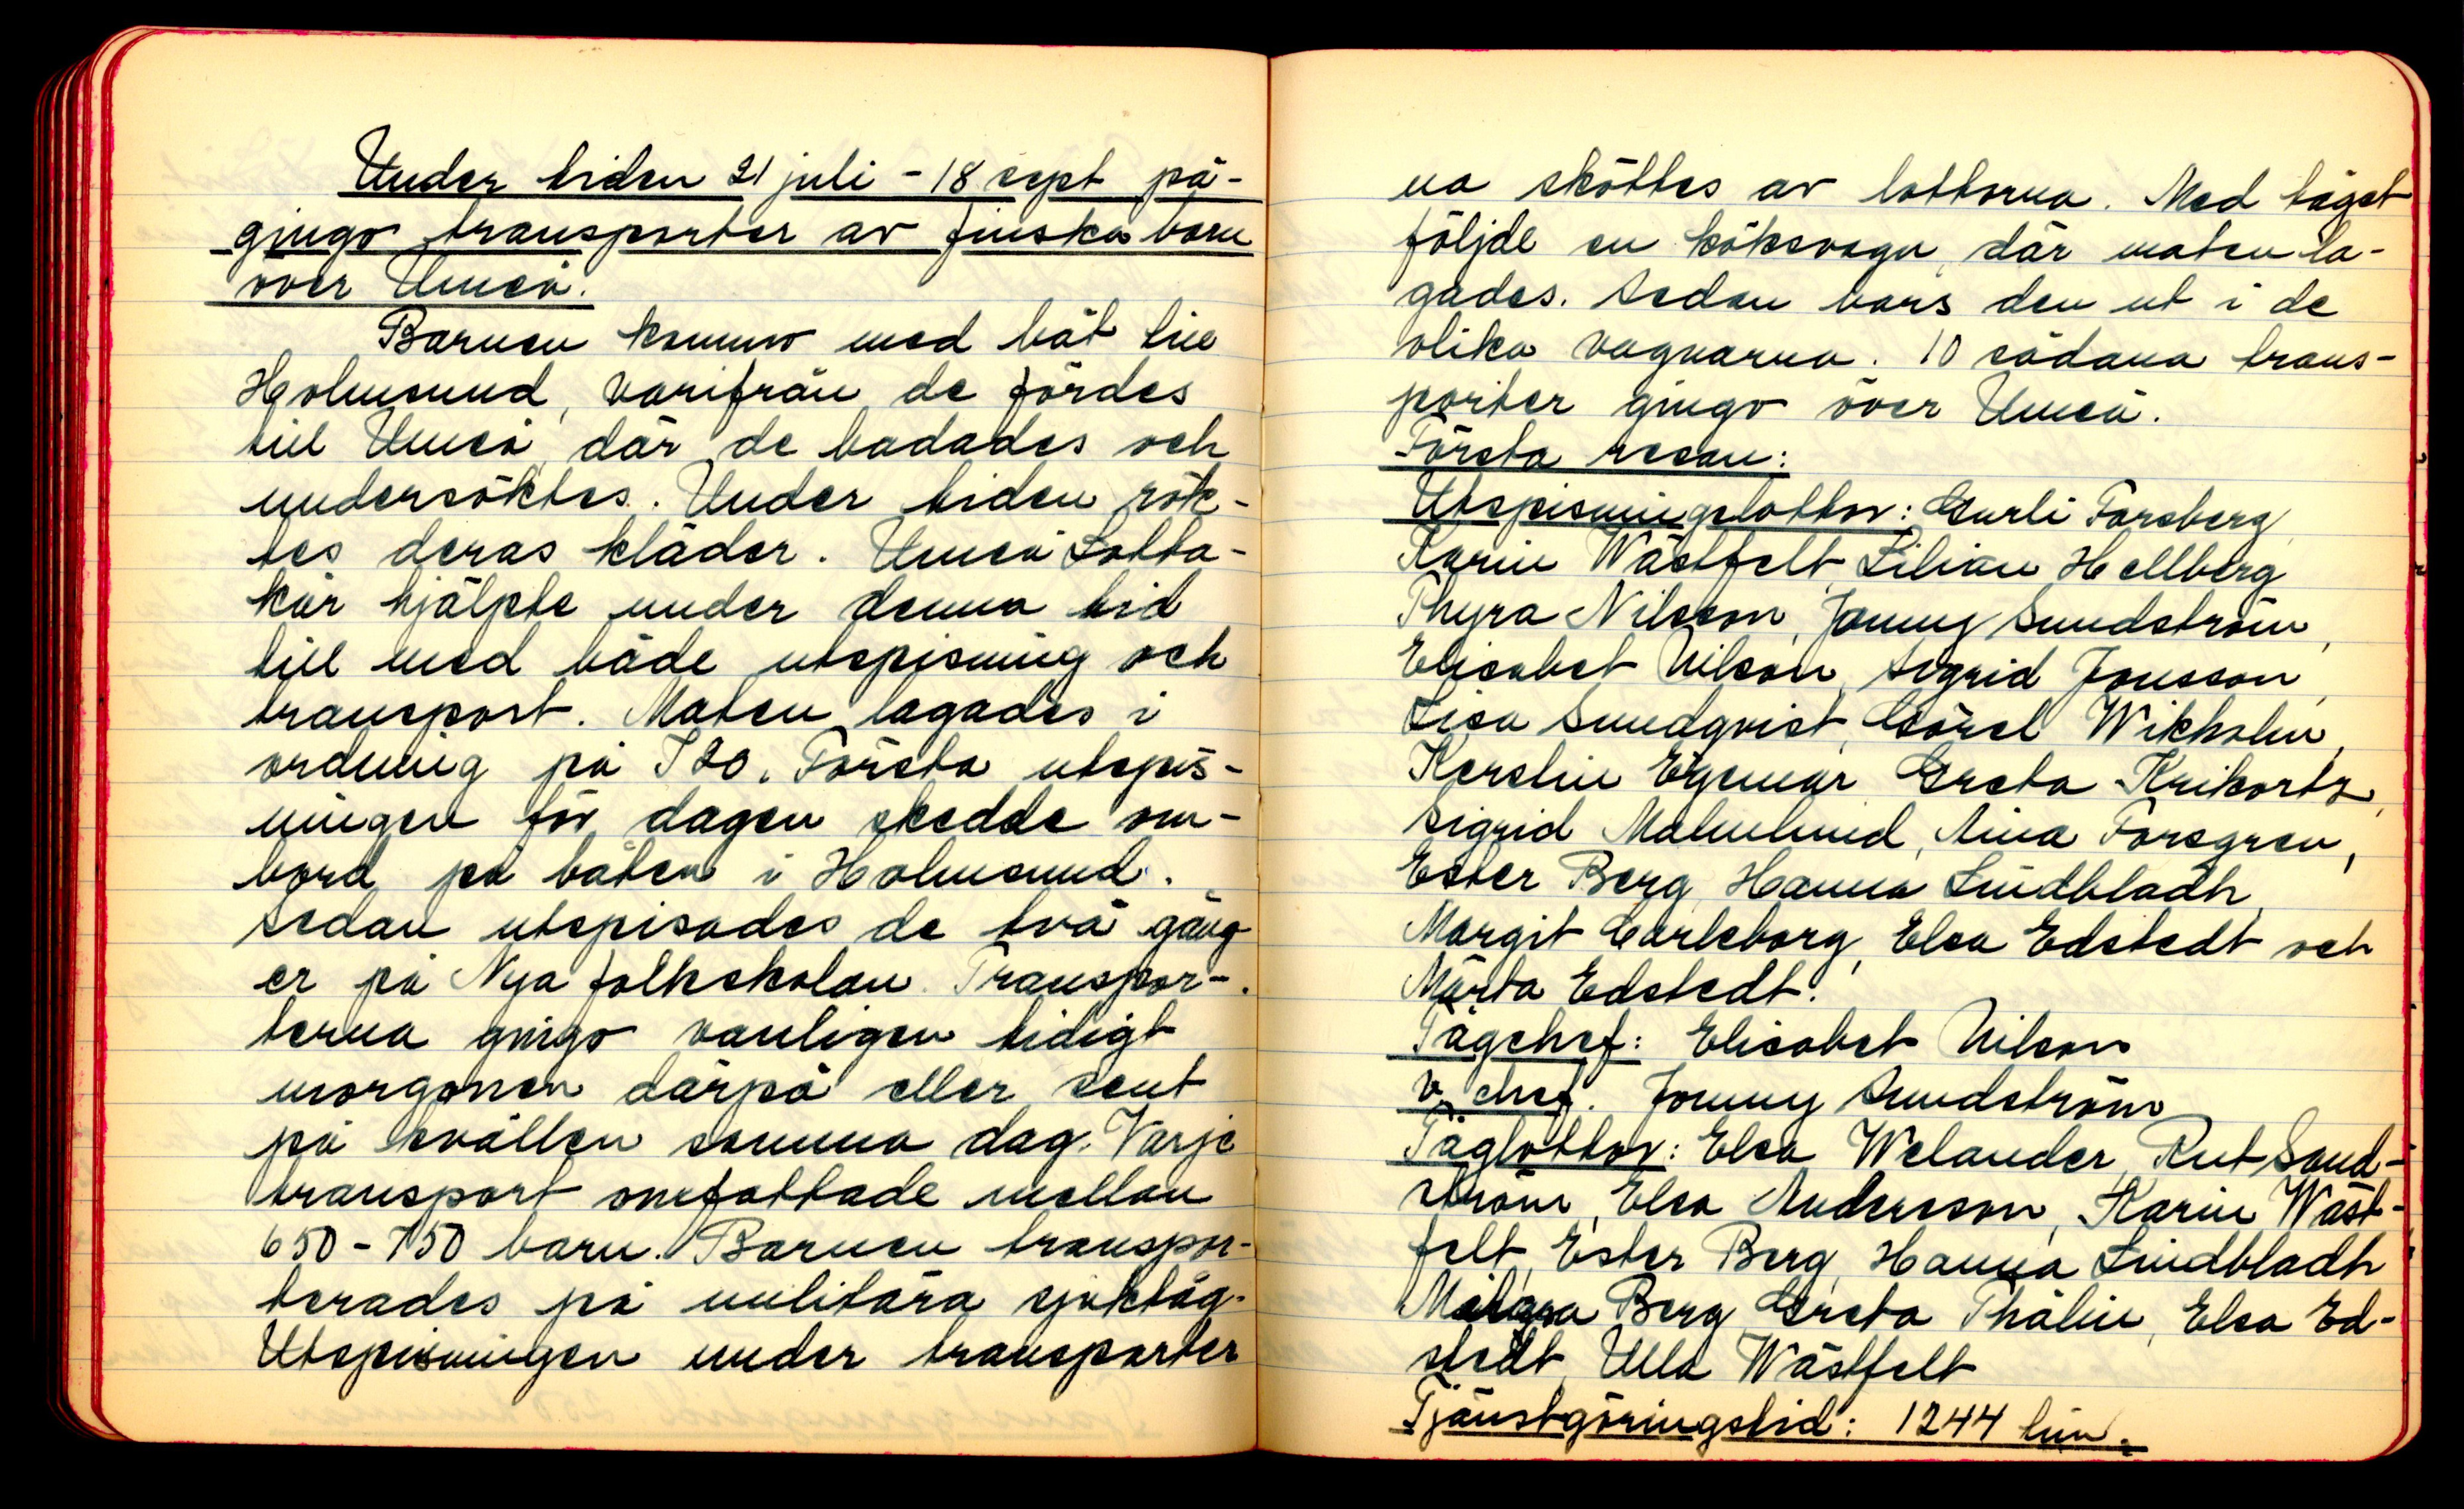 Under tiden 21 juli - 18 sept på-
gingo transporter av finska barn
över Umeå.
Barnen kommo med båt till
Holmsund, varifrån de fördes
till Umeå, där de badades och
undersöktes. Under tiden rök-
tes deras kläder. Umeå Lotta-
kår hjälpte under denna tid
till med både utspisning och
transport. Maten lagades i
ordning på I 20. Första utspis-
ningen för dagen skedde om-
bord på båten i Holmsund.
Sedan utspisades de två gång-
er på Nya folkskolan. Transpor-
terna gingo vanligen tidigt
morgonen därpå eller sent
på kvällen samma dag. Varje
transport omfattade mellan
650-750 barn. Barnen transpor-
terades på militära sjuktåg.
Utspisningen under transporter
na sköttes av lottorna. Med tåget
följde en köksvagn, där maten la-
gades. Sedan bars den ut i de
olika vagnarna. 10 sådana trans-
porter gingo över Umeå.
Första resan:
Utspisningslottor: Gurli Forsberg,
Karin Wästfelt, Lilian Hellberg
Thyra Nilsson, Jonny Sundström,
Elisabet Nilson, Sigrid Jonsson,
Lisa Sundqvist, Görel Wikholm,
Kerstin Egemar, Greta Krikortz,
Sigrid Malmlund, Aina Forsgren,
Ester Berg, Hanna Lindbladh,
Margit Carleborg, Elsa Edstedt och
Märta Edstedt.
Tågchef: Elisabet Nilson
v. chef. Jonny Sundström
Tåglottor: Elsa Welander, Rut Sand-
ström, Elsa Andersson, Karin Wäst-
felt, Ester Berg, Hanna Lindbladh
Berg, Greta Thålin, Elsa Ed-
stedt, Ulla Wästfelt
Tjänstgöringstid: 1244 tim.